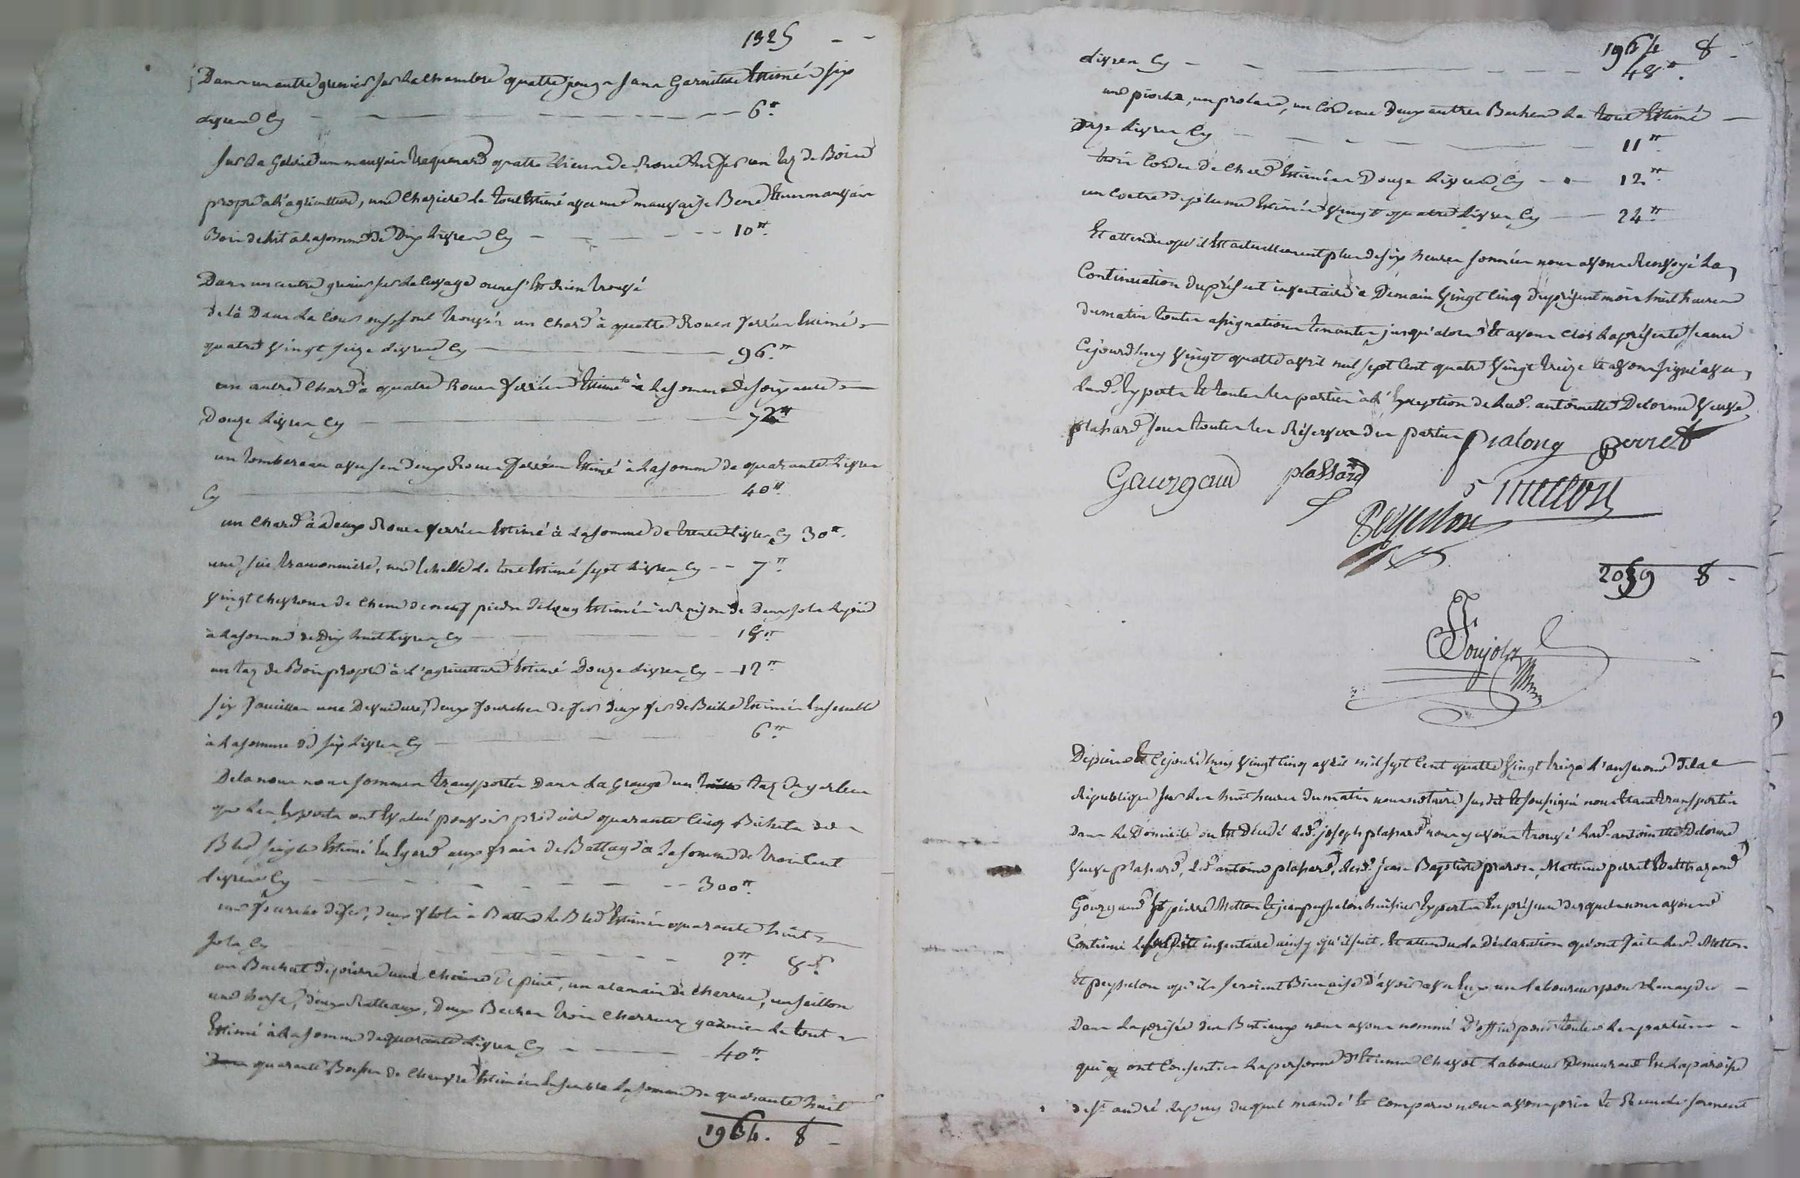 1325 - -
Dans un autre grenier sur la chambre quatre jougs sans garniture Estimés six
Livres Cy - - - 6ᵗᵗ
Sur la Galerie un mauvais traquenard quatre de Roue un taz de Bois
propre a l'agriculture, une le tout Estimé avec une mauvaise Bene Et un mauvais
Bois de lit a la somme de Dix Livres Cy - - - 10ᵗᵗ
Dans un autre grenier sur le ou ne s'est Rien trouvé
de là Dans la Cour ou se sont trouvés un Chard à quatre Roues ferrées Estimé
quatre vingt seize Livres Cy 96ᵗᵗ
un autre Chard a quatre Roues ferrées Estimé à la somme de soixante
Douze Livres Cy 72ᵗᵗ
un tombereau avec ses deux Roues ferrées Estimé à la somme de quarante Livres
Cy 40ᵗᵗ
un Chard à deux Roues ferrées Estimé à la somme de trente Livres Cy 30ᵗᵗ
une scie, une Echelle le tout Estimé sept Livres Cy - - 7ᵗᵗ
vingt chevrons de Chene de neuf pieds de long Estimés à Raison de Deux sols le pied
à la somme de Dix huit Livres Cy 18ᵗᵗ
un taz de Bois propre à l'agriculture Estimé Douze Livres Cy - 12ᵗᵗ
six faucilles une, deux fourches de fer deux fers de Beche Estimés Ensemble
à la somme de six Livres Cy 6ᵗᵗ
De la nous nous sommes transportés Dans la Grange un taz de gerbes
que les Experts ont Evalué pouvoir produire quarante Cinq Bichets de
Bled seigle Estimé En Egard aux frais de Battage à la somme de trois Cent
Livres Cy - - - 300ᵗᵗ
une fourche de fer, deux à Battre le Bled Estimés quarante huit
sols Cy - - - 2ᵗᵗ 8ˢ
un Buchat de pierre une Chaine de, un de charrue, un
une herse, deux Ratteaux, Deux Beches trois Charrues garnies le tout
Estimé à la somme de quarante Livres Cy - 40ᵗᵗ
quarante de Chanvre Estimés Ensemble la somme de quarante huit
1964. 8 -
1964 8 -
Livres Cy - - - 48ᵗᵗ
une pioche, un, un deux autres Beches le tout Estimé
onze Livres Cy - - - 11ᵗᵗ
trois Cordes de Chard Estimées Douze Livres Cy - - 12ᵗᵗ
un Coetre de plume Estimé vingt quatre Livres Cy 24ᵗᵗ
Et attendu qu'il Est actuellement plus de six heures sonnées nous avons Renvoyé la
Continuation du présent inventaire à Demain vingt Cinq du présent mois huit heures
du matin toutes assignations tenantes jusqu'alors Et avons clos la présente seance
Cejourd'huy vingt quatre avril mil sept Cent quatre vingt treize Et avons signé avec
Experts Et toutes les parties à l'Exception de antoinette Delorme veuve
plassard sous toutes les Réserves des parties pralong perret
Gaurgaud plassard metton
Peysselon
2059 8 -
Soujols
Depuis Et Cejourd'huy vingt Cinq avril mil sept Cent quatre vingt treize l'an second de la
République sur les huit heures du matin nous notaire susdit Et soussigné nous Etant transportés
Dans le Domicile ou Est Décédé joseph plassard nous y avons trouvé antoinette Delorme
veuve plassard, antoine plassard, jean Baptiste, Mathieu perret Balthazard
Gourgaud pierre Metton Et jean peysselon huissier Experts En présence desquels nous avons
Continué inventaire ainsy qu'il suit. Et attendu la Déclaration qu'ont faite Metton
Et peysselon qu'ils seroient Bienaise d'avoir avec Eux un Laboureur pour les ayder
Dans la prisée des Bestiaux nous avons nommé D'office pour toutes les parties
qui y ont Consentie la personne d'Etienne Chavot Laboureur Demeurant En la paroisse
de Sᵗ andré le puy duquel mandé Et Comparu nous avons pris Et Recu le serment